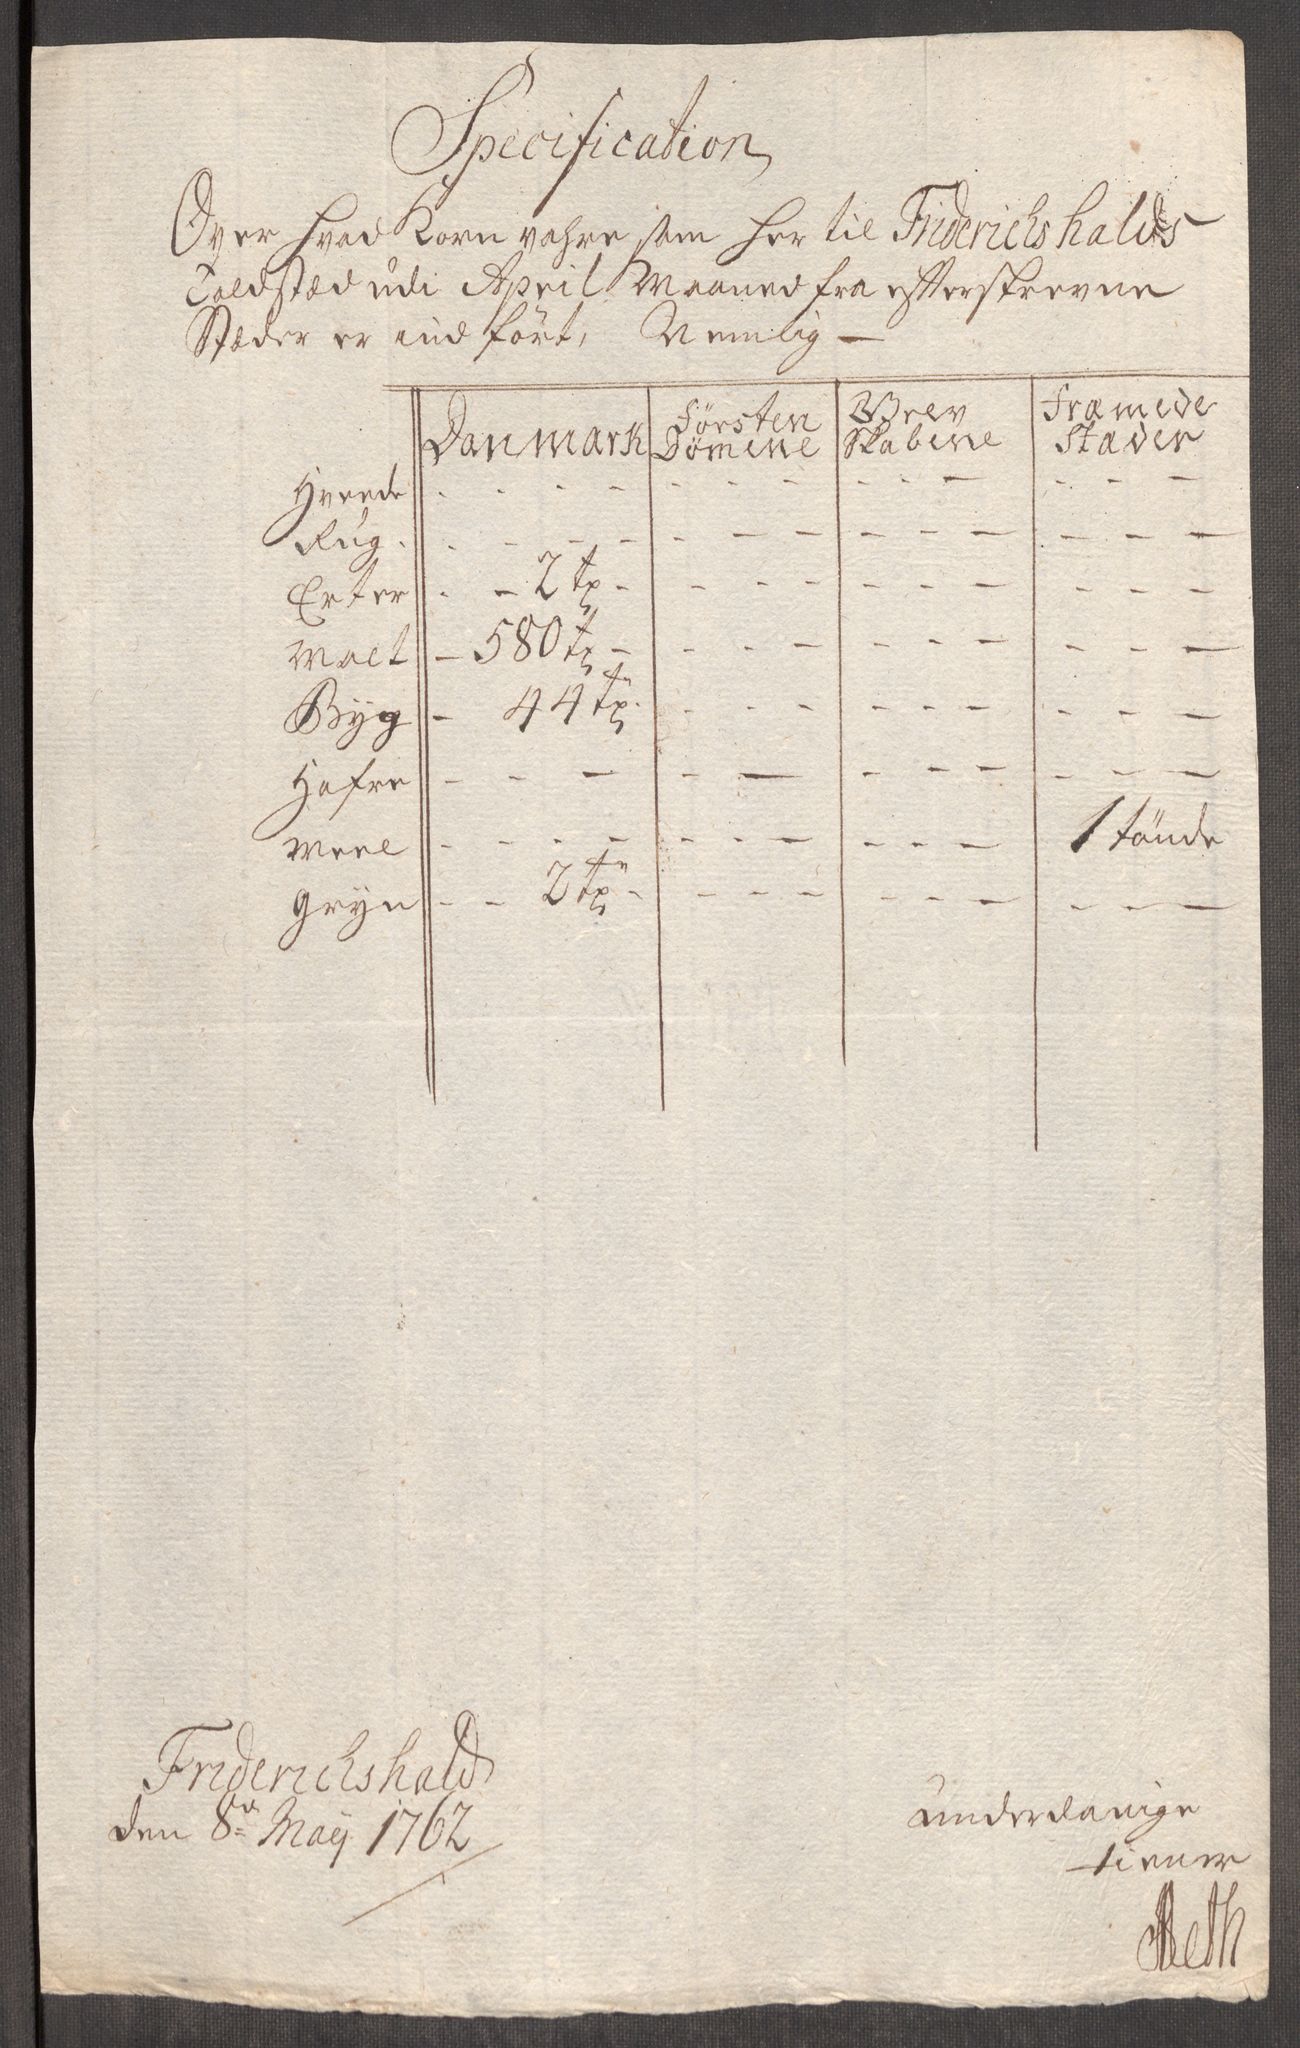 Specification
Over hvad Korn vahre som her til Friderichshalds
Toldstæd udi April Maaned fra efterskrevne
Stæder er ind ført, Nemlig —
Danmark Førsten Dømene Grev Skabene Fræmede Stæder
Hveede - - - - - - - - - - - - -
Rug - - - - - - - - - - - - -
Erter - - 2 tr - - - - - - - - - -
Malt - 580 tr - - - - - - - - - -
Byg - 44 tr - - - - - - - - -
Hafre - - - - - - - - - - -
Meel - - - - - - - - - - 1 tønde
Gryn - - 2 tr - - - - - - - - - -
Friderichshald
den 8de May 1762
underdanige
tiener